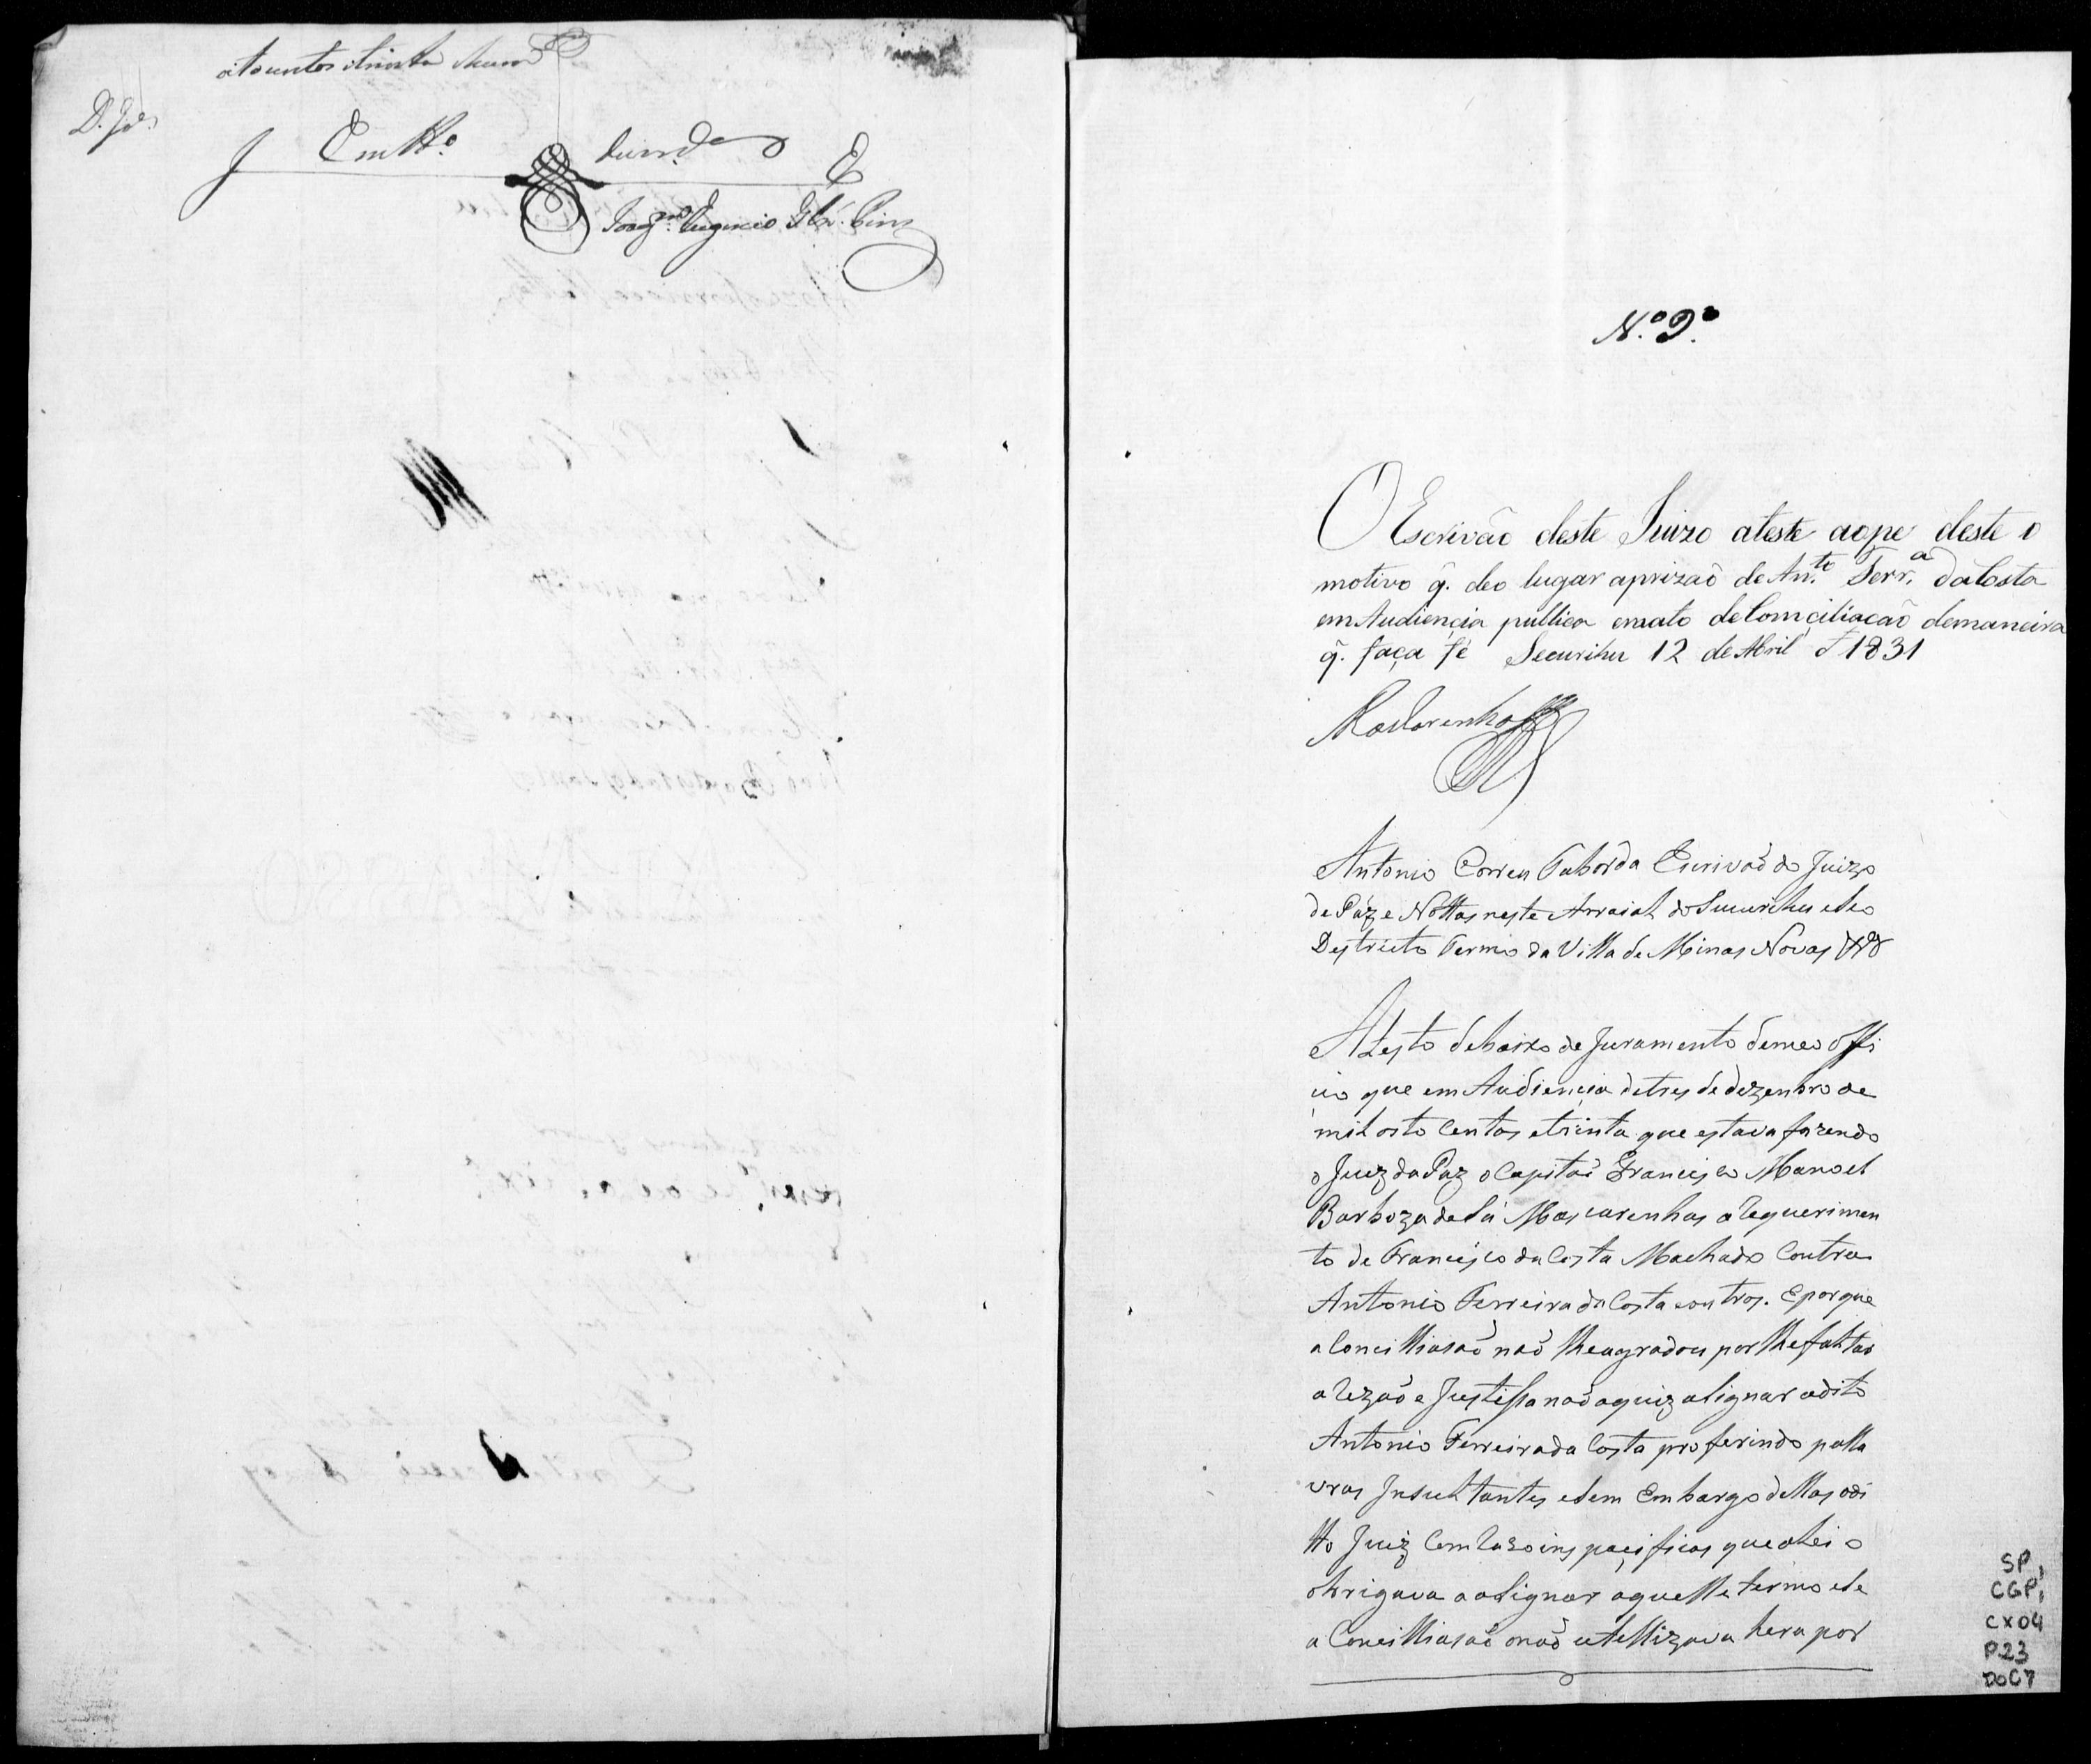 oitocentos etrinta ehum
D. Jds.
Em tto. de verd.e
Joaq.m Eugenio
N.o 9.o
O Escrivaõ deste Juizo ateste aope deste o
motivo q̃. deo lugar aprizaõ de An.to Ferr.a daCosta
em Audiencia publica emato deComciliacaõ demaneira
q̃. faça fé Sucurihu 12 de Abril d 1831
Mascarenhas
Antonio Correa Taborda Escrivaõ do Juizo
de Páz e Nottas neste Arraial do Sucurihu eseo
Destricto Termo da Villa de Minas Novas
Atesto debaixo de Juramento demeo offi
cio que em Audiencia detres de dezembro de
mil oito Centos etrinta que estava fazendo
o Juiz da Paz o Capitaõ Francisco Manoel
Barboza de Sá Mascarenhas a Requerimen
to de Francisco da Costa Machado Contra
Antonio Ferreira da Costa eoutros. Eporque
a Concilliasaõ naõ lheagradou por lhefaltar
a Rezaõ e Justissa naõ aquiz asignar odito
Antonio Ferreira da Costa proferindo palla
vras Insultantes esem Embargo dellas odi
tto Juiz Com Razoins pacificas que alei o
obrigava a asignar aquelle termo ese
a Concilliasaõ onaõ utellizava hera por
SP,
CGP,
CX04
P.23
DOC7